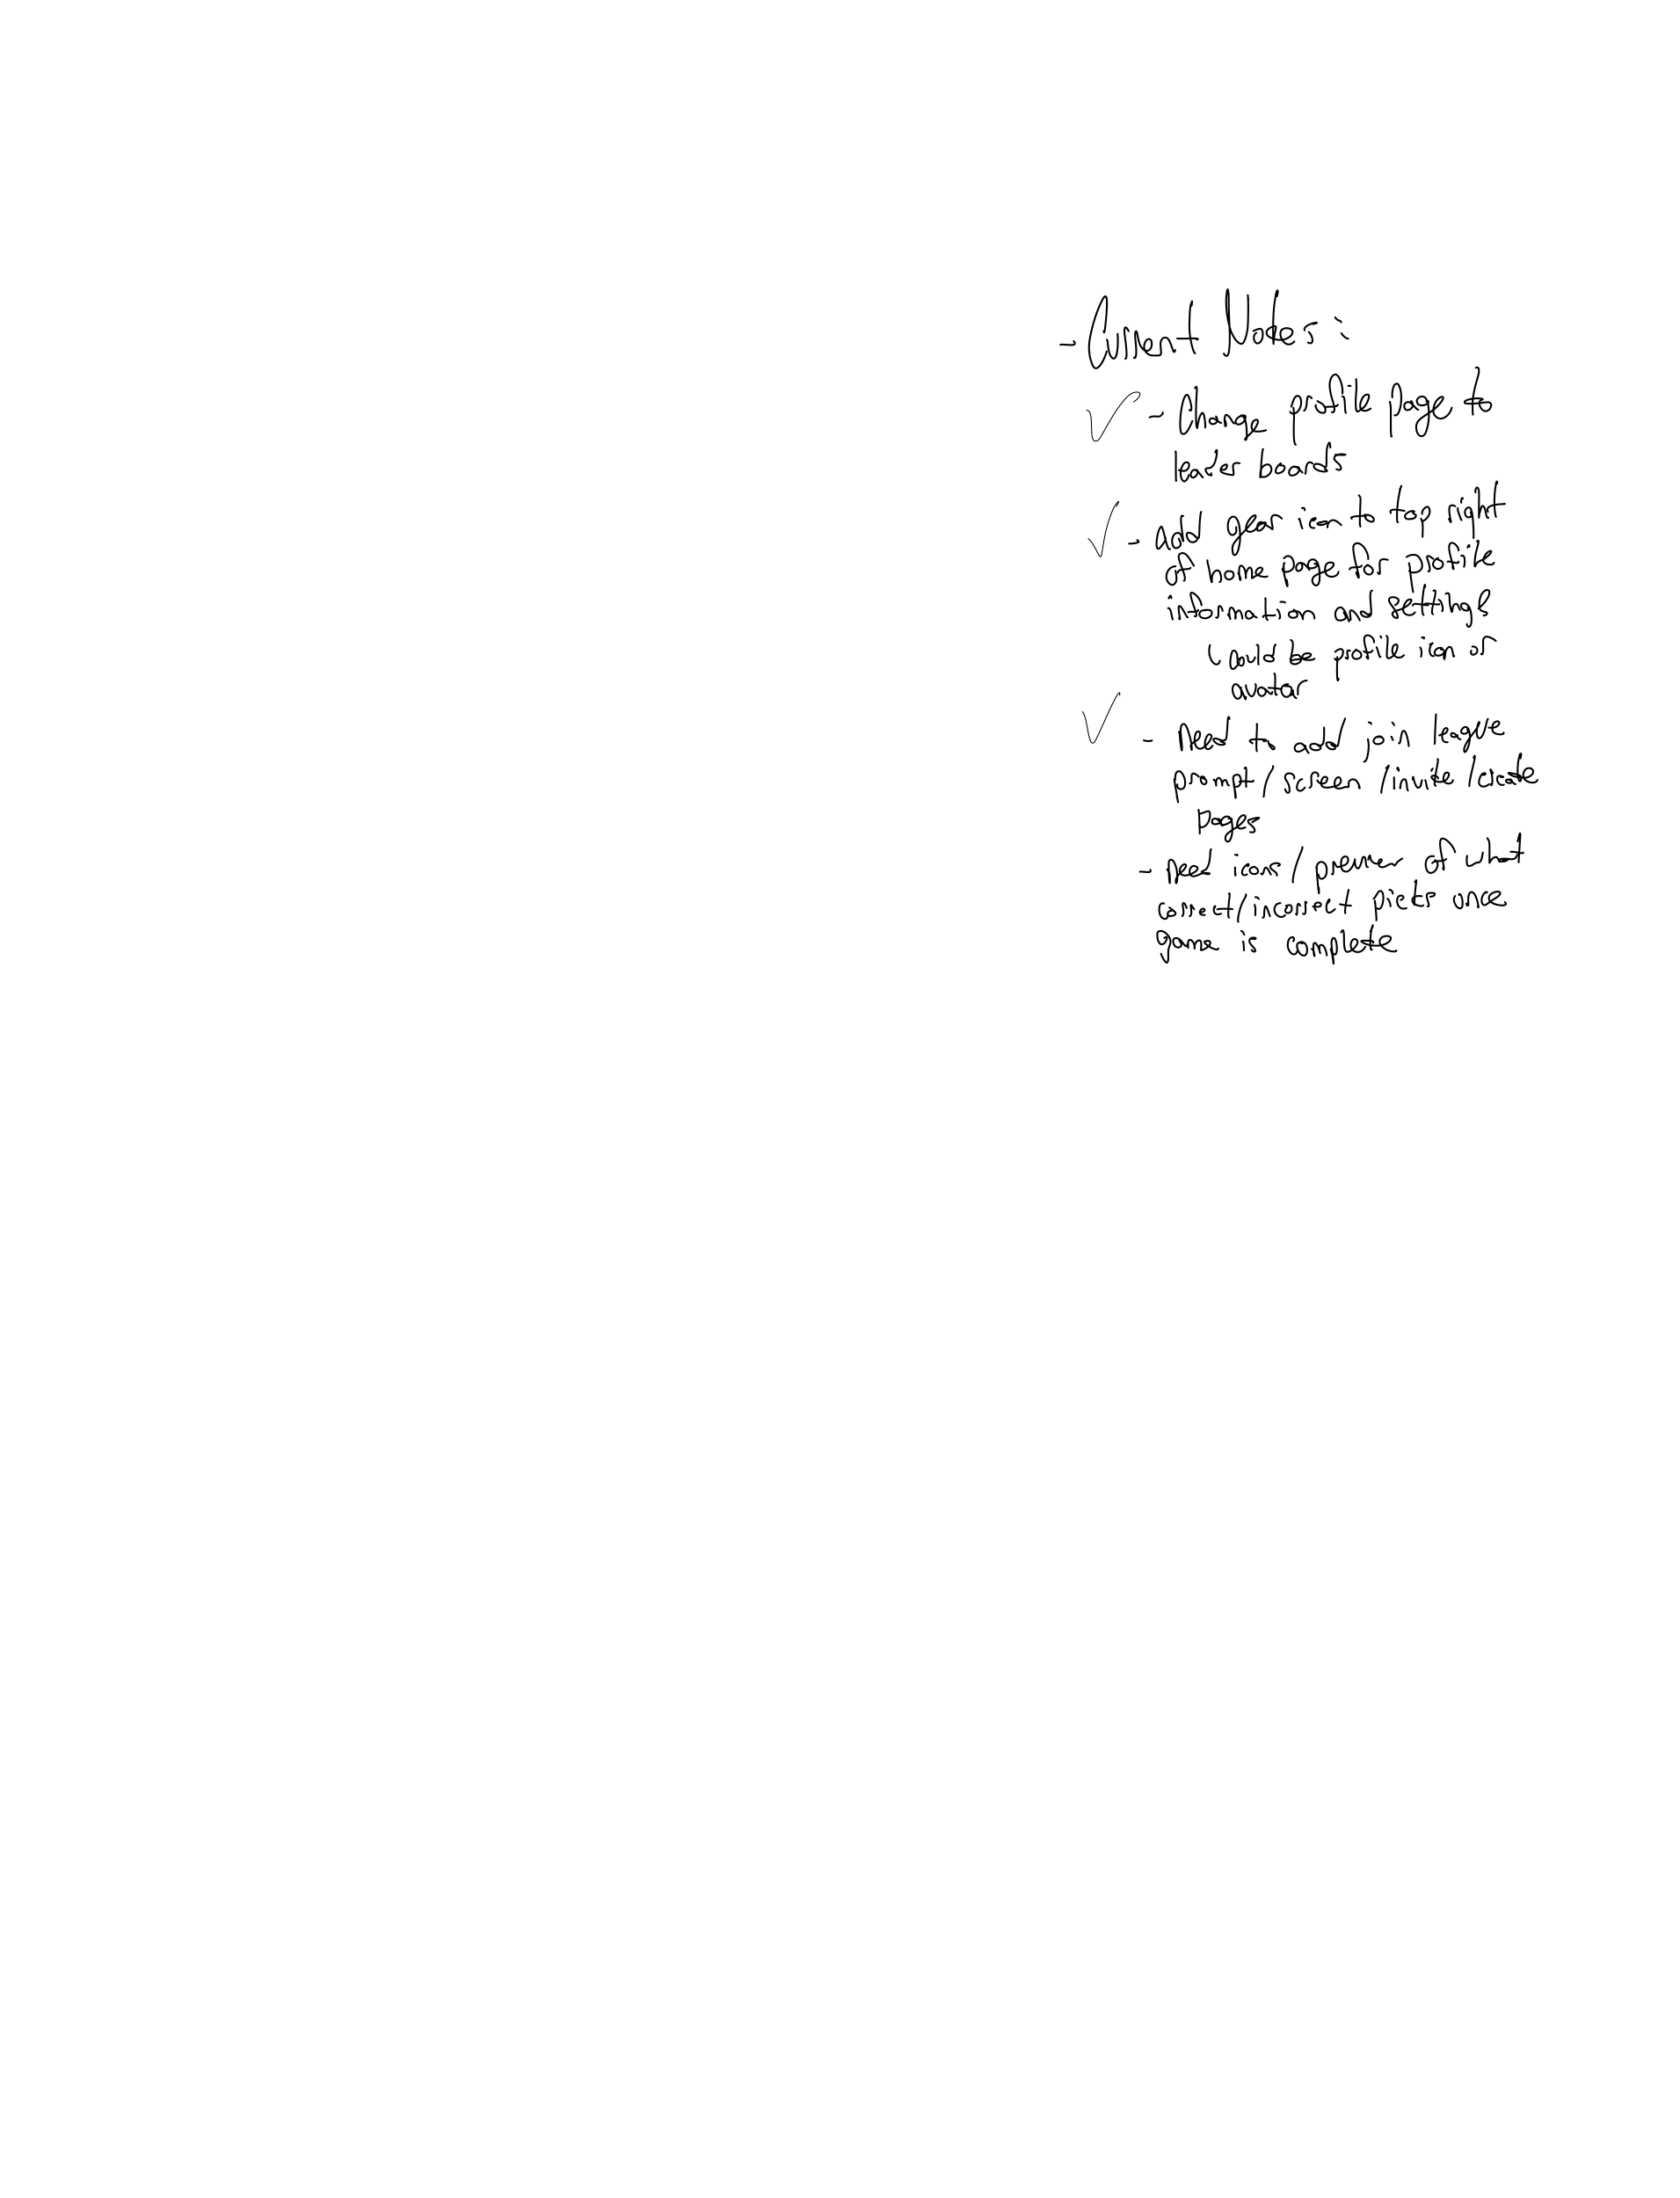 - Current Notes:
✓ - Change profile page to
leader boards
✓ - add gear icon to top right
of home page for profile
information and settings
could be profile icon or
avatar
✓ - Need to add join league
prompt/screen/invite/create
pages
- need icons/ of what
correct/incorrect picks once
game is complete